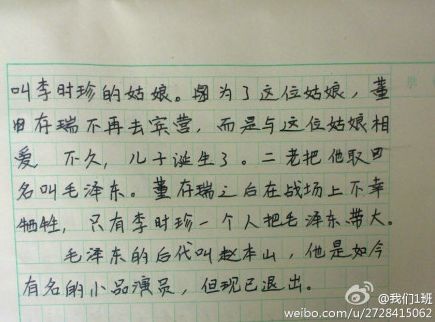 叫李时珍的姑娘。因为了这位姑娘，董
存瑞不再去宾营，而是与这位姑娘相
爱 不久，儿子诞生了。二老把他取
名叫毛泽东。董存瑞之后在战场上不幸
牺牲，只有李时珍一个人把毛泽东带大。
毛泽东的后代叫赵本山，他是如今
有名的小品演员，但现已退出。
@我们1班
weibo.com/u/2728415062